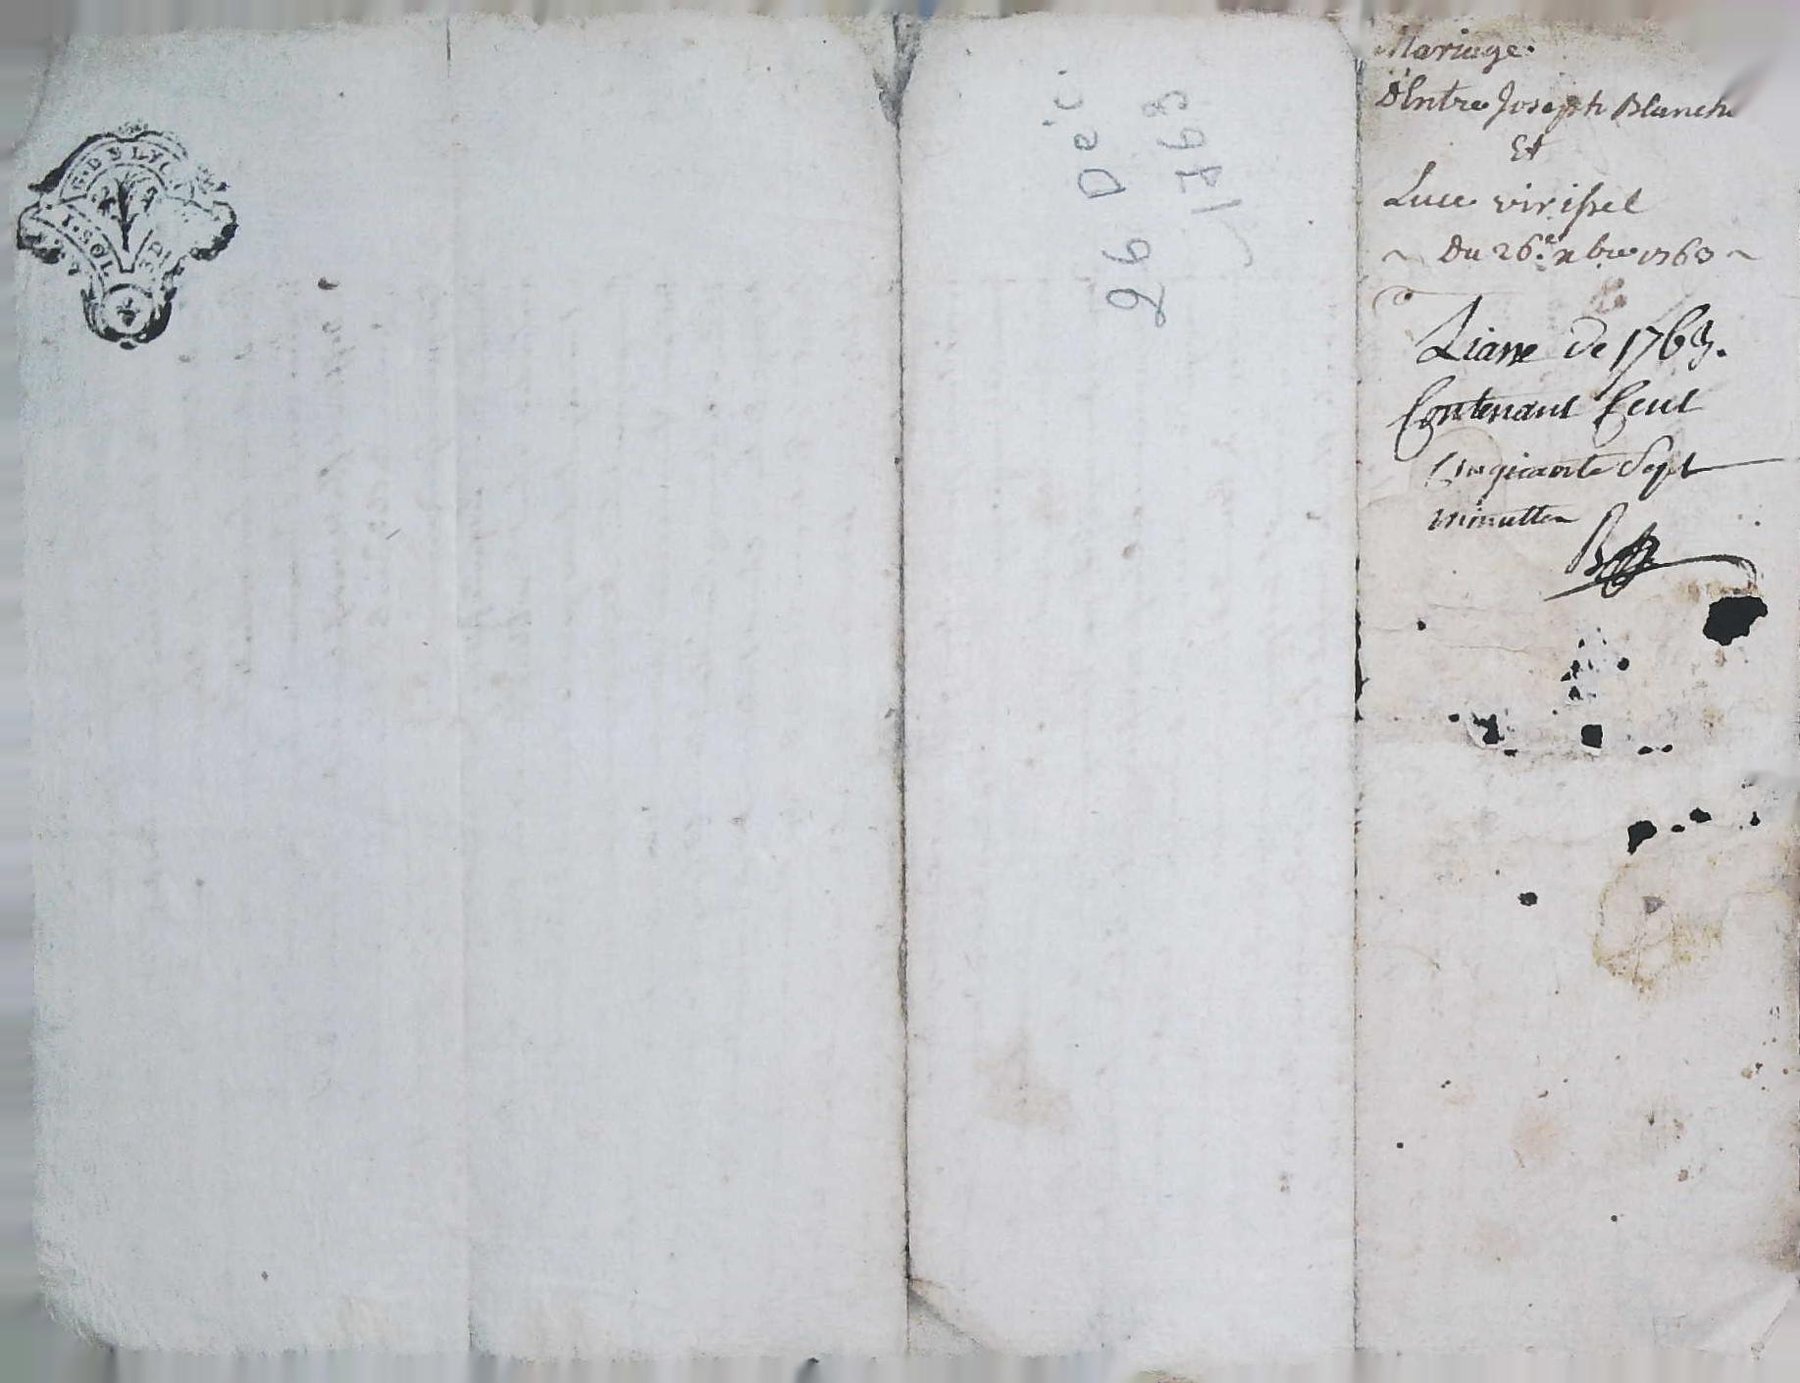 G. DE LYON
1. SOL
26 Dec
1763
Mariage
D'Entre Joseph Blanch
Et
Luce virissel
~ Du 26.e xbre 1763 ~
Liasse de 1763.
Contenant Cent
Cinquante Sept
minuttes